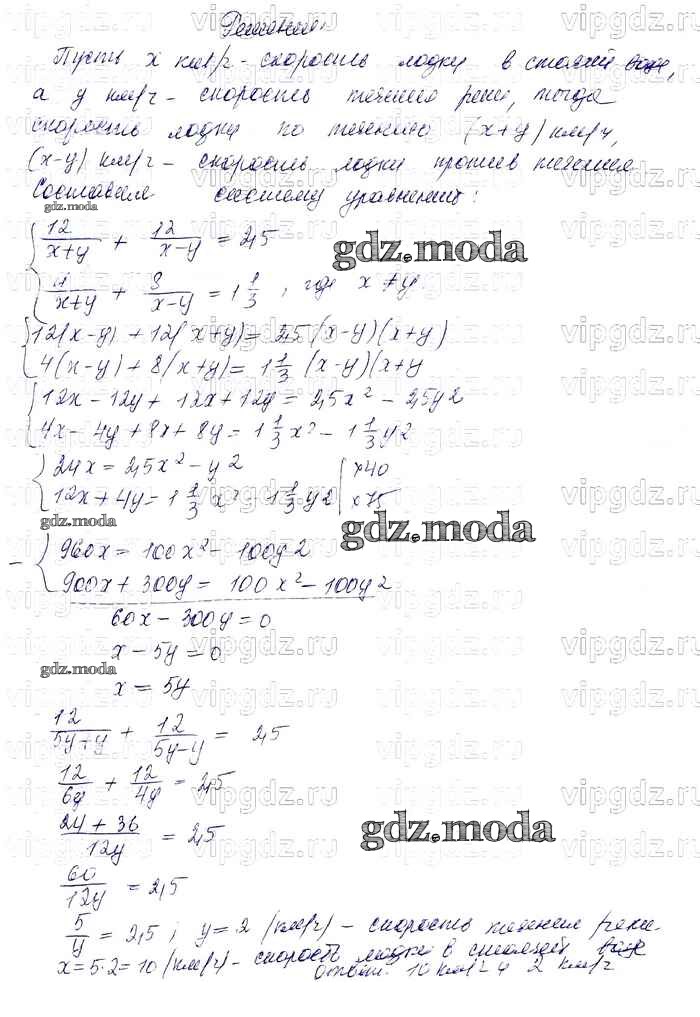 Решение.
Пусть x км/ч - скорость лодки в стоячей воде,
а y км/ч - скорость течения реки, тогда
скорость лодки по течению (x+y) км/ч,
(x-y) км/ч - скорость лодки против течения
Составим систему уравнений:
gdz.moda
{ 12/(x+y) + 12/(x-y) = 2,5
gdz.moda
4/(x+y) + 8/(x-y) = 1 1/3, где x ≠ y.
{ 12(x-y) + 12(x+y) = 2,5(x-y)(x+y)
4(x-y) + 8(x+y) = 1 1/3 (x-y)(x+y
{ 12x - 12y + 12x + 12y = 2,5x² - 2,5y2
4x - 4y + 8x + 8y = 1 1/3 x² - 1 1/3 y2
{ 24x = 2,5x² - y2 | ×40
12x + 4y = 1 1/3 x² - 1 1/3 y2 | ×75
gdz.moda
gdz.moda
- { 960x = 100x² - 100y2
900x + 300y = 100x² - 100y2
60x - 300y = 0
x - 5y = 0
gdz.moda
x = 5y
12/(5y+y) + 12/(5y-y) = 2,5
12/6y + 12/4y = 2,5
(24 + 36)/12y = 2,5
gdz.moda
60/12y = 2,5
5/y = 2,5; y = 2 (км/ч) - скорость течения реки.
x = 5·2 = 10 (км/ч) - скорость лодки в стоячей воде
Ответ: 10 км/ч и 2 км/ч
vipgdz.ru